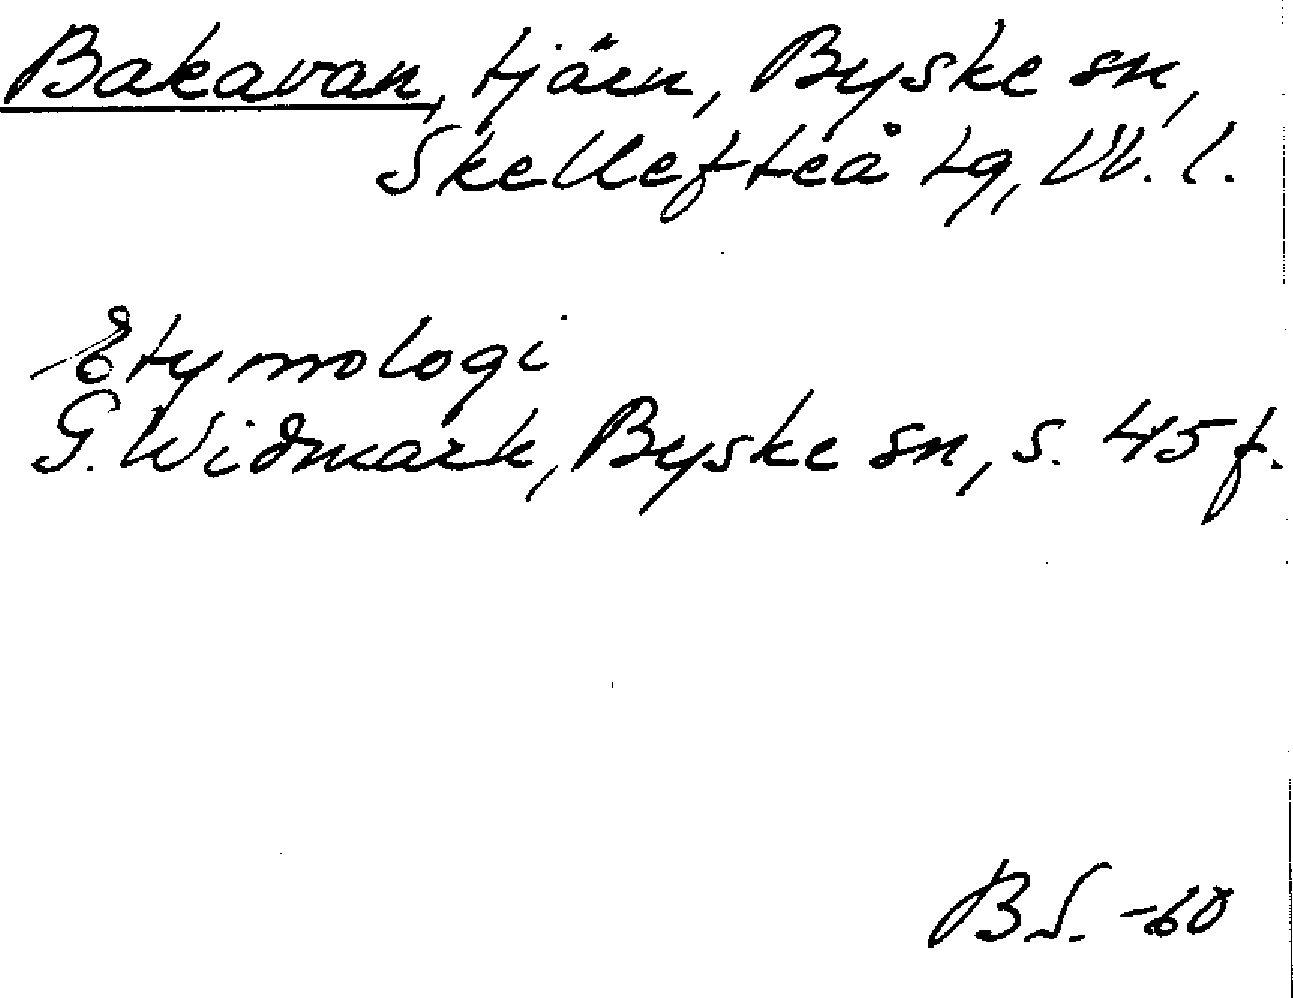 Bakavan, tjärn, Byske sn,
Skellefteå tg, Vb. l.
Etymologi
G. Widmark, Byske sn, s. 45 f.
B S. -60